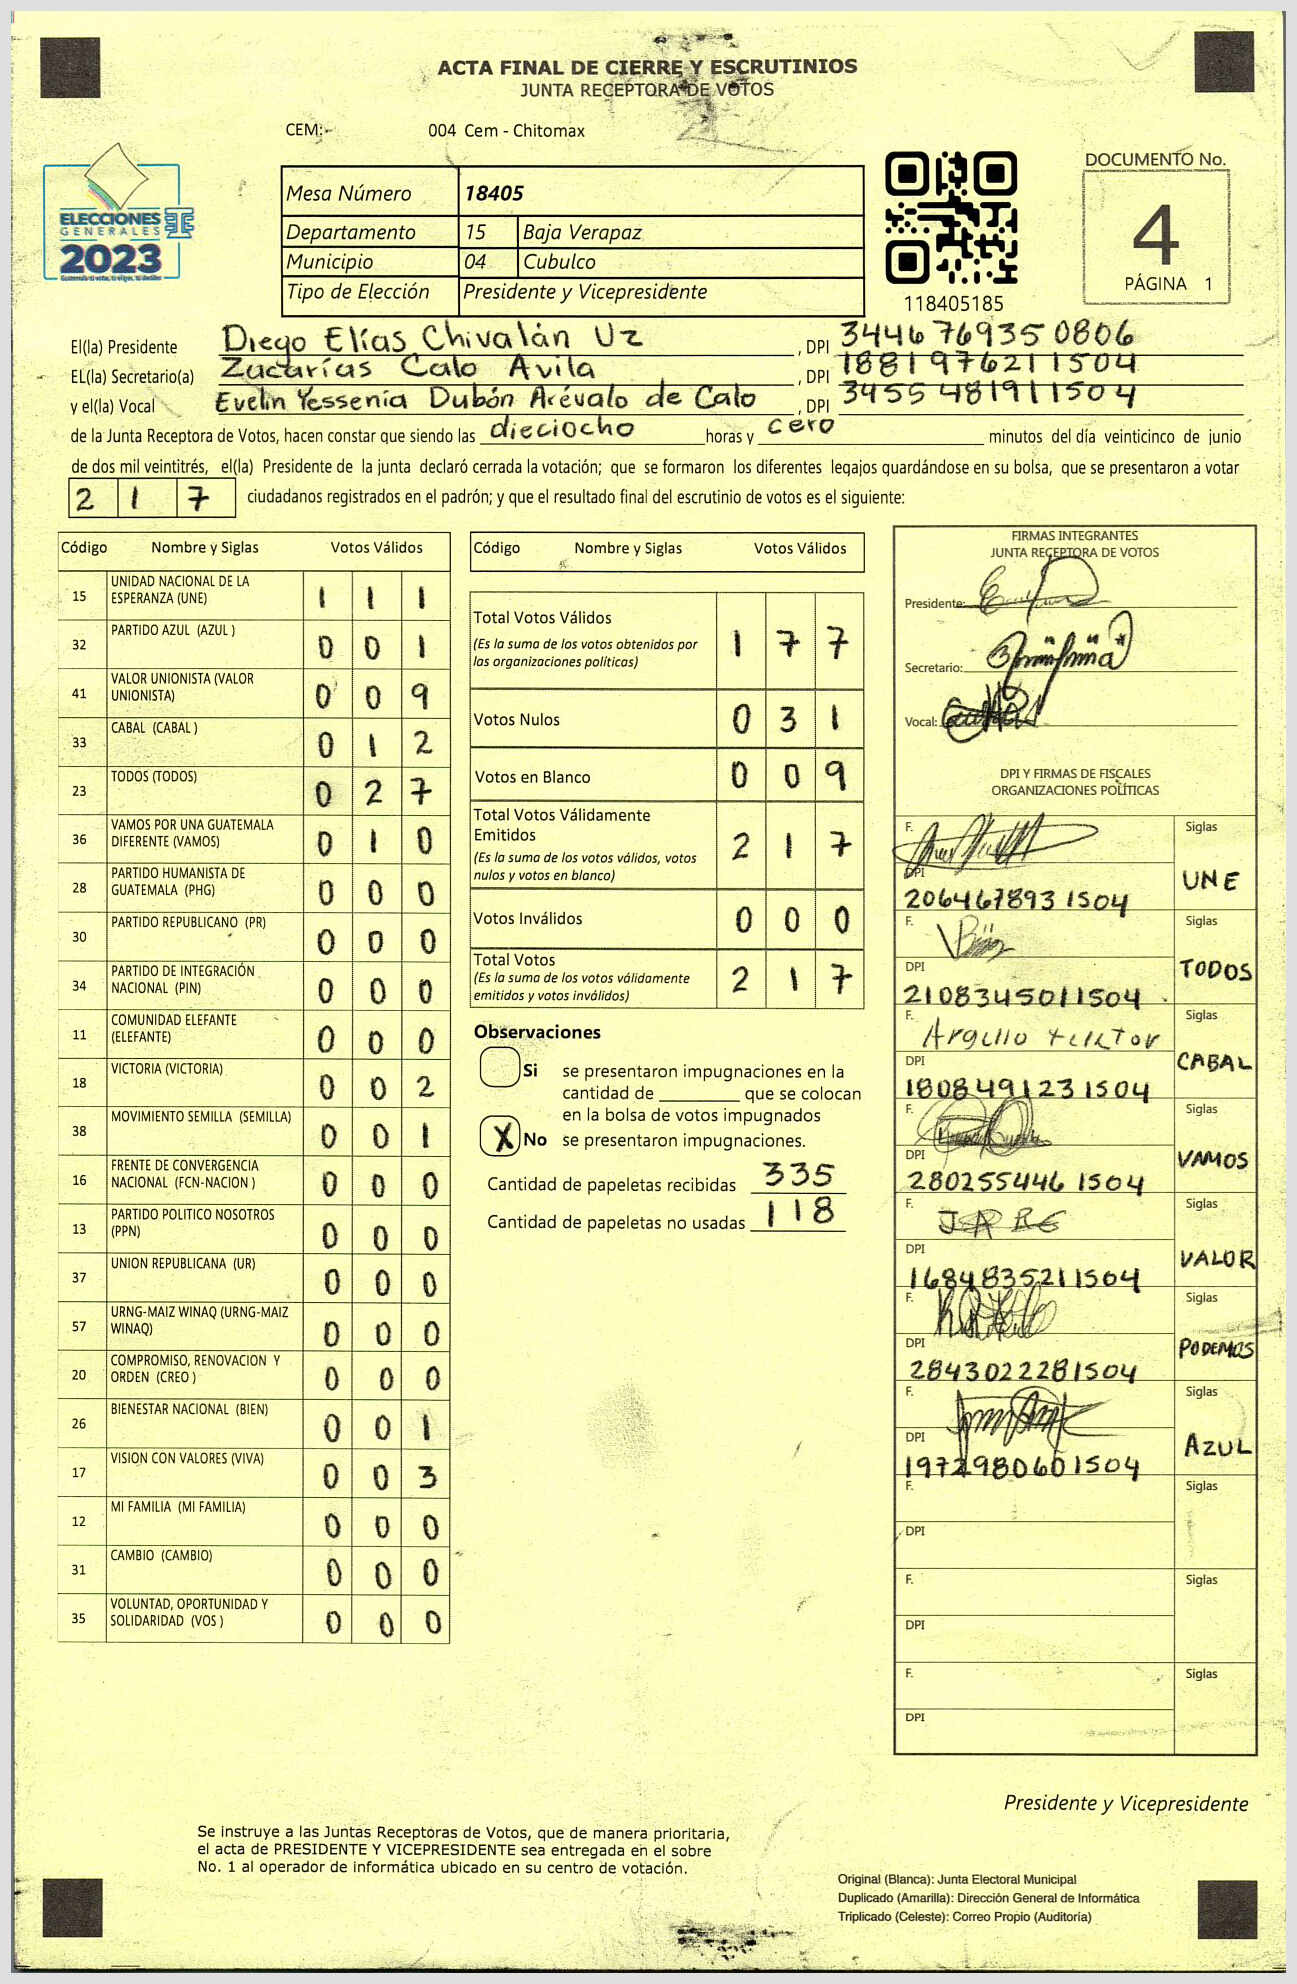 ACTA FINAL DE CIERRE Y ESCRUTINIOS
JUNTA RECEPTORA DE VOTOS
CEM:- 004 Cem - Chitomax
ELECCIONES
GENERALES
2023
Mesa Número 18405
Departamento 15 Baja Verapaz
Municipio 04 Cubulco
Tipo de Elección Presidente y Vicepresidente
118405185
DOCUMENTO No.
4
PÁGINA 1
El(la) Presidente Diego Elías Chivalán Uz , DPI 3446769350806
EL(la) Secretario(a) Zacarías Calo Avila , DPI 1881976211504
y el(la) Vocal Evelin Yessenia Dubón Arévalo de Calo , DPI 3455481911504
de la Junta Receptora de Votos, hacen constar que siendo las dieciocho horas y cero minutos del día veinticinco de junio
de dos mil veintitrés, el(la) Presidente de la junta declaró cerrada la votación; que se formaron los diferentes legajos guardándose en su bolsa, que se presentaron a votar
217 ciudadanos registrados en el padrón; y que el resultado final del escrutinio de votos es el siguiente:
Código Nombre y Siglas Votos Válidos
15 UNIDAD NACIONAL DE LA ESPERANZA (UNE) 1 1 1
32 PARTIDO AZUL (AZUL ) 0 0 1
41 VALOR UNIONISTA (VALOR UNIONISTA) 0 0 9
33 CABAL (CABAL ) 0 1 2
23 TODOS (TODOS) 0 2 7
36 VAMOS POR UNA GUATEMALA DIFERENTE (VAMOS) 0 1 0
28 PARTIDO HUMANISTA DE GUATEMALA (PHG) 0 0 0
30 PARTIDO REPUBLICANO (PR) 0 0 0
34 PARTIDO DE INTEGRACIÓN NACIONAL (PIN) 0 0 0
11 COMUNIDAD ELEFANTE (ELEFANTE) 0 0 0
18 VICTORIA (VICTORIA) 0 0 2
38 MOVIMIENTO SEMILLA (SEMILLA) 0 0 1
16 FRENTE DE CONVERGENCIA NACIONAL (FCN-NACION ) 0 0 0
13 PARTIDO POLITICO NOSOTROS (PPN) 0 0 0
37 UNION REPUBLICANA (UR) 0 0 0
57 URNG-MAIZ WINAQ (URNG-MAIZ WINAQ) 0 0 0
20 COMPROMISO, RENOVACION Y ORDEN (CREO ) 0 0 0
26 BIENESTAR NACIONAL (BIEN) 0 0 1
17 VISION CON VALORES (VIVA) 0 0 3
12 MI FAMILIA (MI FAMILIA) 0 0 0
31 CAMBIO (CAMBIO) 0 0 0
35 VOLUNTAD, OPORTUNIDAD Y SOLIDARIDAD (VOS ) 0 0 0
Código Nombre y Siglas Votos Válidos
Total Votos Válidos 1 7 7
(Es la suma de los votos obtenidos por
las organizaciones políticas)
Votos Nulos 0 3 1
Votos en Blanco 0 0 9
Total Votos Válidamente
Emitidos 2 1 7
(Es la suma de los votos válidos, votos
nulos y votos en blanco)
Votos Inválidos 0 0 0
Total Votos 2 1 7
(Es la suma de los votos válidamente
emitidos y votos inválidos)
Observaciones
Si se presentaron impugnaciones en la
cantidad de ________ que se colocan
en la bolsa de votos impugnados
X No se presentaron impugnaciones.
Cantidad de papeletas recibidas 335
Cantidad de papeletas no usadas 118
FIRMAS INTEGRANTES
JUNTA RECEPTORA DE VOTOS
Presidente:
Secretario:
Vocal:
DPI Y FIRMAS DE FISCALES
ORGANIZACIONES POLÍTICAS
F. Siglas
DPI UNE
2064678931504
F. Siglas
DPI TODOS
2108345011504
F. Siglas
DPI CABAL
1808491231504
F. Siglas
DPI VAMOS
2802554461504
F. Siglas
DPI VALOR
1684835211504
F. Siglas
DPI PODEMOS
2843022281504
F. Siglas
DPI AZUL
1972980601504
F. Siglas
DPI
F. Siglas
DPI
F. Siglas
DPI
Presidente y Vicepresidente
Se instruye a las Juntas Receptoras de Votos, que de manera prioritaria,
el acta de PRESIDENTE Y VICEPRESIDENTE sea entregada en el sobre
No. 1 al operador de informática ubicado en su centro de votación.
Original (Blanca): Junta Electoral Municipal
Duplicado (Amarilla): Dirección General de Informática
Triplicado (Celeste): Correo Propio (Auditoría)